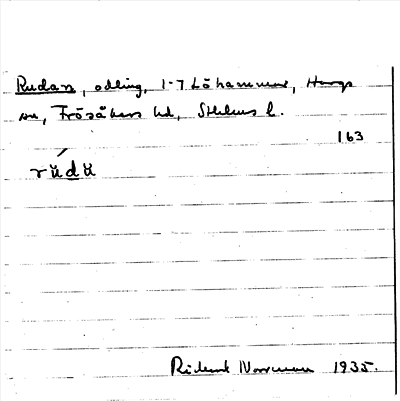 Rudan, odling, 1-7 Löhammar, Hargs
sn, Frösåkers hd, Sthlms l.
163
rúdu
Rickard Norrman 1935.